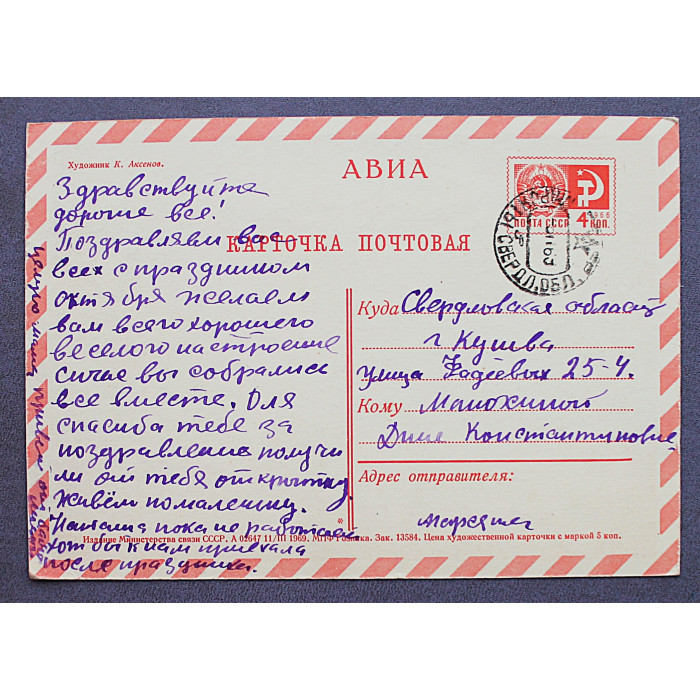 Художник К. Аксенов.
АВИА
КАРТОЧКА ПОЧТОВАЯ
ПОЧТА СССР
1966
4 КОП.
СВЕРДЛ. ОБЛ.
Здравствуйте
дорогие все!
Поздравляем вас
всех с праздником
октября желаем
вам всего хорошего
веселого настроение
сичас вы собрались
все вместе. Оля
спасиба тебе за
поздравление получи
ли от тебя открытку.
Живём помаленьку.
Наташа пока не работает
хот бы к нам приехала
после праздника.
Целую мама привет от
Куда Свердловская область
г. Кушва
улица Фадеевых 25-4.
Кому Манохиной
Дине Константиновне
Адрес отправителя:
Издание Министерства связи СССР. А 02647 11/III 1969. МПФ Гознака. Зак. 13584. Цена художественной карточки с маркой 5 коп.